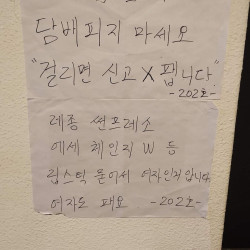 담배피지 마세요
"걸리면 신고 X 팹니다"
-202호-
레종 썬프레소
에쎄 체인지 W 등
립스틱 묻어서 여자인거 압니다.
여자도 패요 -202호-